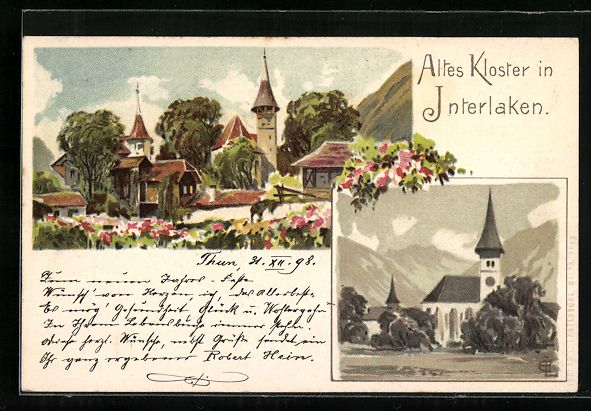 Altes Kloster in
Interlaken.
Thun 31. XII. 98.
Zum neuen Jahres-Feste
Wünsch' von Herzen ich, das Allerbeste
Es mög' Gesundheit, Glück u. Wohlergehn
In Ihrem Lebensbuch immer stehn.
herzl. Wünsche, nebst Grüße sendet ein
Ihr ganz ergebener Robert Hein.